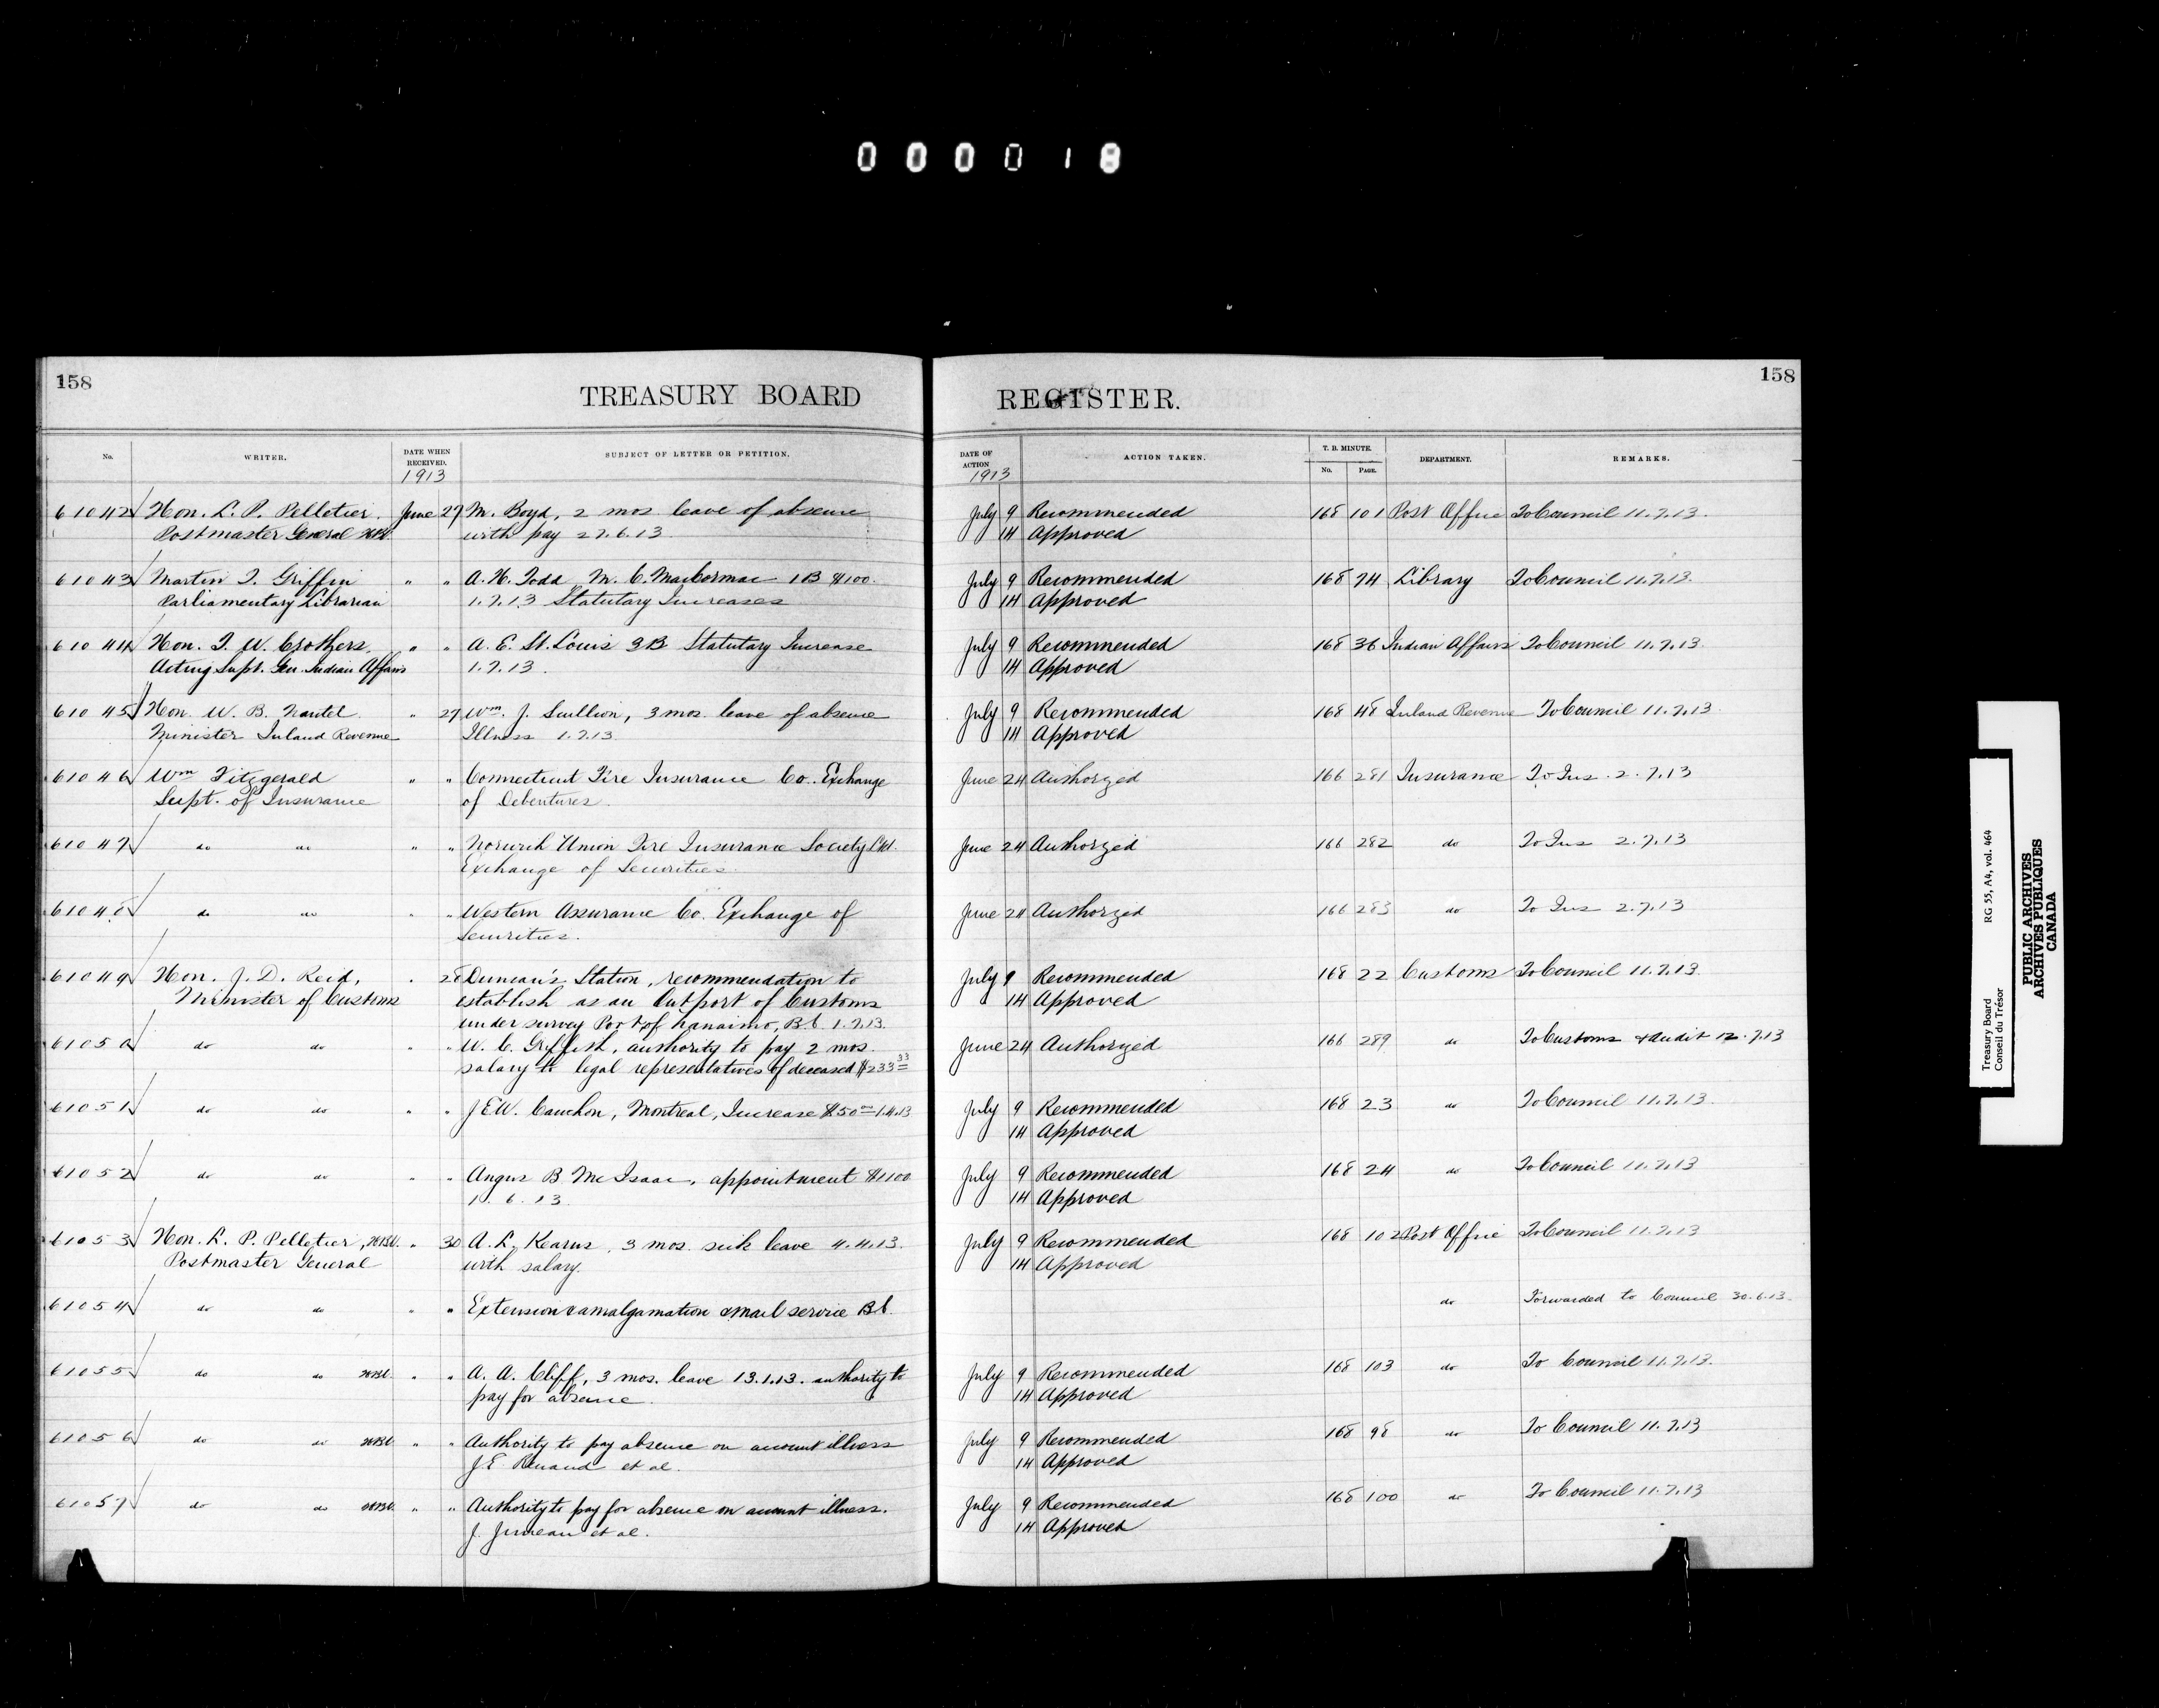 000018
158
TREASURY BOARD REGISTER.
158
No. WRITER. DATE WHEN RECEIVED. SUBJECT OF LETTER OR PETITION. DATE OF ACTION ACTION TAKEN. T. B. MINUTE. No. PAGE. DEPARTMENT. REMARKS.
1913 1913
61042 Hon. L. P. Pelletier. June 27 M. Boyd, 2 mos leave of absence July 9 Recommended 168 101 Post Office To Council 11.7.13.
Postmaster General with pay 27.6.13. 14 Approved
61043 Martin J. Griffin " " A. H. Todd, M. C. MacCormac 1B $100. July 9 Recommended 168 74 Library To Council 11.7.13.
Parliamentary Librarian 1.7.13 Statutary Increases 14 Approved
61044 Hon. T. W. Crothers, " " A. E. St. Louis 3B Statutary Increase July 9 Recommended 168 36 Indian Affairs To Council 11.7.13.
Acting Supt. Gen. Indian Affairs 1.7.13. 14 Approved
61045 Hon. W. B. Nantel " 27 Wm. J. Scullion, 3 mos. leave of absence July 9 Recommended 168 48 Inland Revenue To Council 11.7.13.
Minister Inland Revenue Illness 1.7.13 14 Approved
61046 Wm Fitzgerald " " Connecticut Fire Insurance Co. Exchange June 24 Authorzed 166 281 Insurance To Ins. 2.7.13
Supt. of Insurance of Debentures.
61047 do do " " Norwich Union Fire Insurance Society Ltd. June 24 Authorzed 166 282 do To Ins 2.7.13
Exchange of Securities.
61048 do do " " Western Assurance Co. Exchange of June 24 Authorzed 166 283 do To Ins 2.7.13
Securities.
61049 Hon. J. D. Reid, " 28 Duncan's Station, recommendation to July 9 Recommended 168 22 Customs To Council 11.7.13.
Minister of Customs establish as an Outport of Customs 14 Approved
under survey Port of Nanaimo, B.C. 1.7.13.
61050 do do " " W. C. Griffith, authority to pay 2 mos. June 24 Authorzed 166 289 do To Customs & Audit 12.7.13
salary to legal representatives of deceased $233 33
61051 do do " " J E W. Cauchon, Montreal, Increase $50 00 1.4.13 July 9 Recommended 168 23 do To Council 11.7.13.
14 Approved
61052 do do " " Angus B. McIsaac, appointment $1100 July 9 Recommended 168 24 do To Council 11.7.13
1. 6. 13. 14 Approved
61053 Hon. L. P. Pelletier, " 30 A. L. Kearns, 3 mos. sick leave 4.4.13. July 9 Recommended 168 102 Post Office To Council 11.7.13
Postmaster General with salary. 14 Approved
61054 do do " " Extension & amalgamation mail service B.C. do Forwarded to Council 30.6.13.
61055 do do " " A. A. Cliff, 3 mos. leave 13.1.13. authority to July 9 Recommended 168 103 do To Council 11.7.13.
pay for absence. 14 Approved
61056 do do " " Authority to pay absence on account illness July 9 Recommended 168 98 do To Council 11.7.13
J. E. Renaud et al. 14 Approved
61057 do do " " Authority to pay for absence on account illness. July 9 Recommended 168 100 do To Council 11.7.13
J. Juneau et al. 14 Approved
Treasury Board RG 55, A4, vol. 464
Conseil du Trésor
PUBLIC ARCHIVES
ARCHIVES PUBLIQUES
CANADA